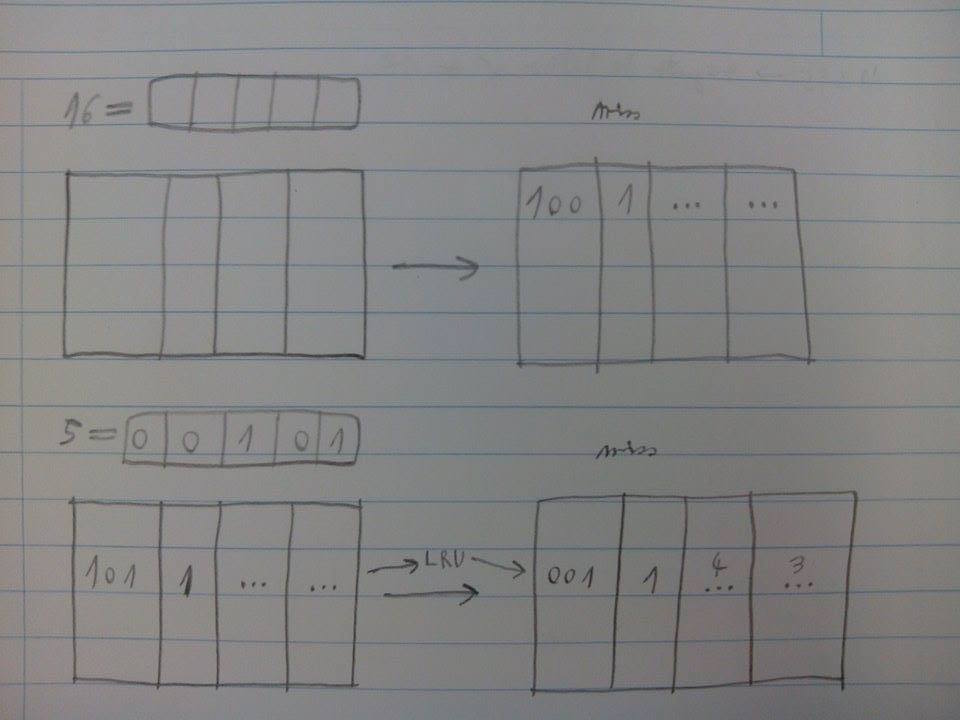 16 =
miss
100 1 ... ...
5 = 0 0 1 0 1
miss
101 1 ... ...
LRU
001 1 4 ... 3 ...